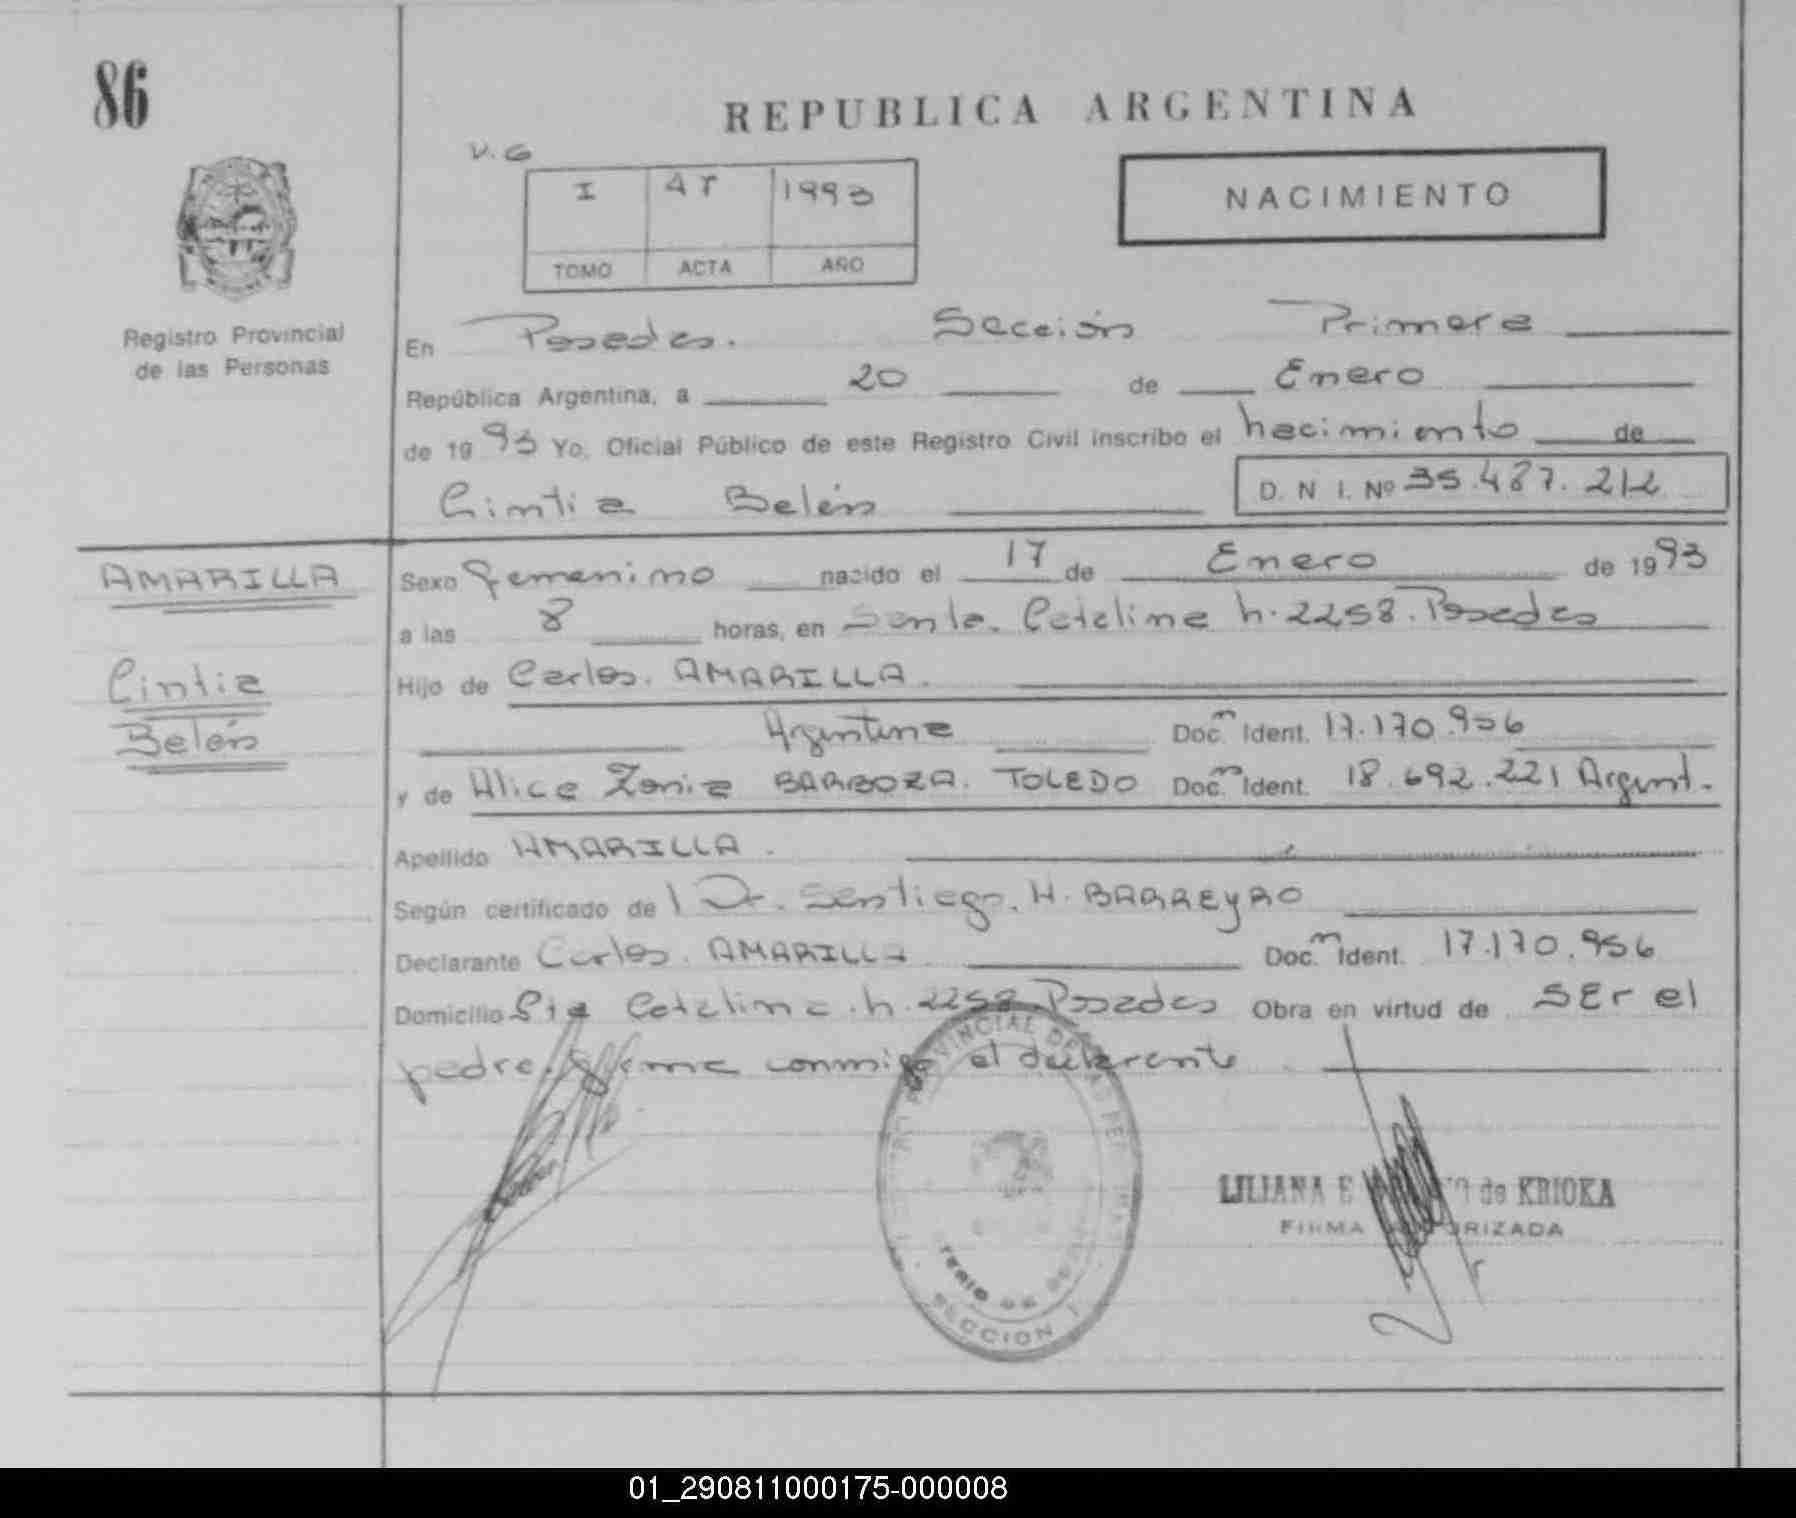 86
REPUBLICA ARGENTINA
V. G
I 47 1993
TOMO ACTA AÑO
NACIMIENTO
Registro Provincial
de las Personas
En Posadas. Sección Primera
República Argentina, a 20 de Enero
de 1993 Yo, Oficial Público de este Registro Civil inscribo el nacimiento de
Cintia Belén D. N I. Nº 35.487.212
AMARILLA
Cintia
Belén
Sexo femenino nacido el 17 de Enero de 1993
a las 8 horas, en Santa. Catalina n. 2258. Posadas
Hijo de Carlos. AMARILLA.
Argentina Doc.m Ident. 17.170.956
y de Alice Zonia BARBOZA. TOLEDO Doc.m Ident. 18.692.221 Argent.
Apellido AMARILLA.
Según certificado de l Dr. Santiago. H. BARREYRO
Declarante Carlos. AMARILLA Doc.m Ident. 17.170.956
Domicilio Sta Catalina. n. 2258 Posadas Obra en virtud de SEr el
padre. Firma conmigo el declarante
PROVINCIAL DE LAS PER
SECCION 1
LILIANA E de KRIOKA
FIRMA AUTORIZADA
01_290811000175-000008